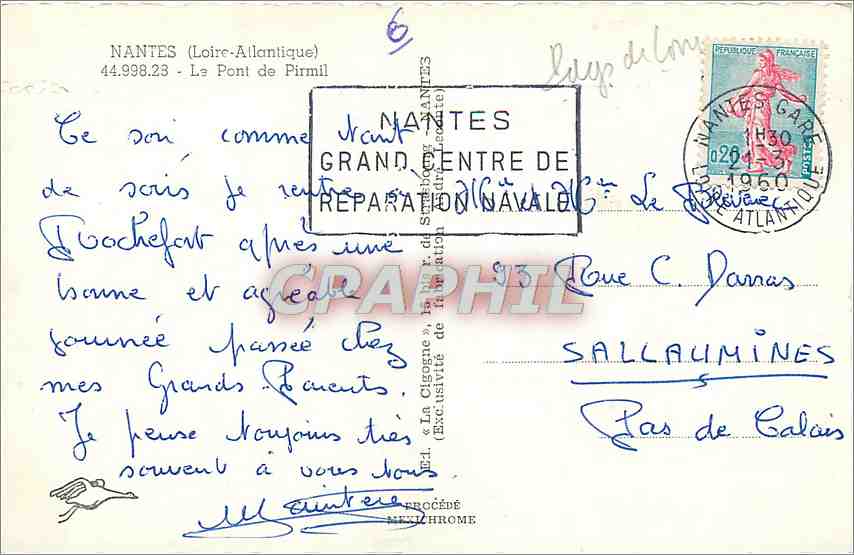 6
NANTES (Loire-Atlantique)
44.998.23 - Le Pont de Pirmil
Ce soir comme tant
de soirs je rentre à
Rochefort après une
bonne et agréable
journée passée chez
mes Grands-Parents.
Je pense toujours très
souvent à vous tous.
Ed. « La Cigogne », 15 bis r. de Strasbourg - NANTES
(Exclusivité de fabrication André Leconte)
PROCÉDÉ
MEXICHROME
NANTES
GRAND CENTRE DE
REPARATION NAVALE
REPUBLIQUE FRANÇAISE
0,20
POSTES
NANTES GARE
1H30
21-3
1960
LOIRE ATLANTIQUE
Mr et Mme Le
93 Rue C. Darras
SALLAUMINES
Pas de Calais
CPARAPHIL